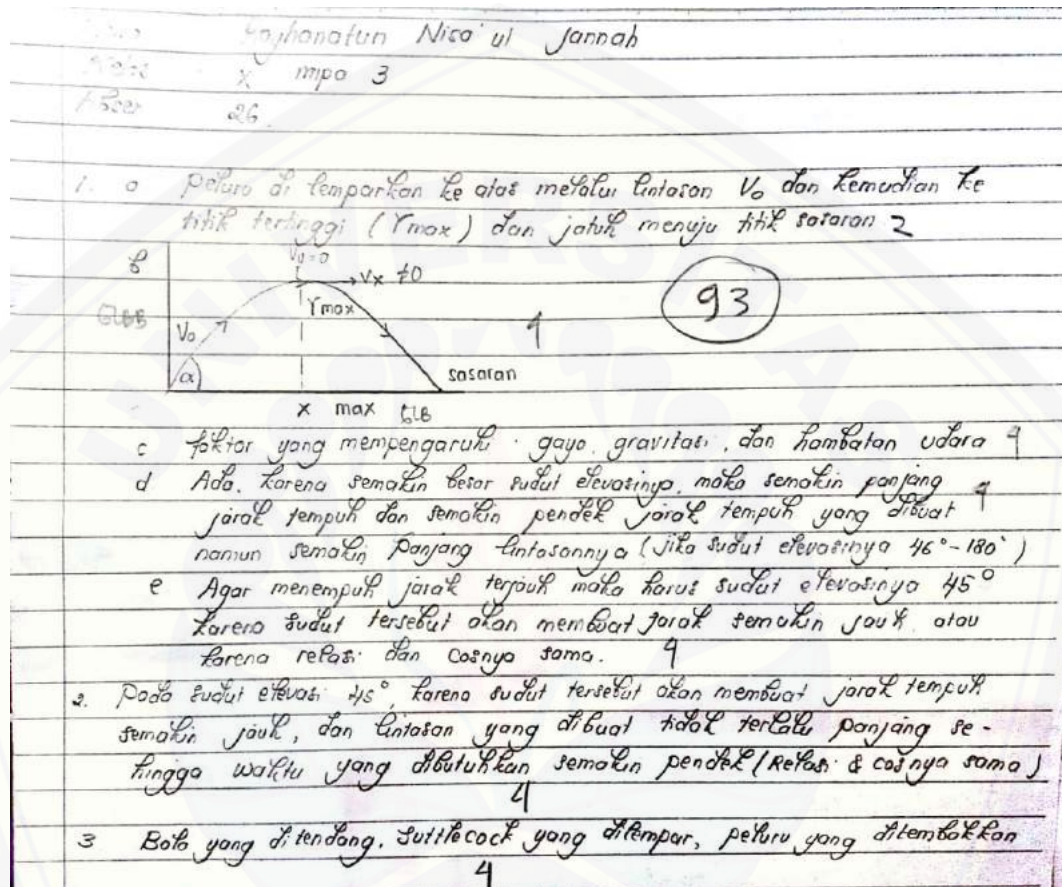 Nisa'ul Jannah
X mipa 3
26
1. a peluru di lemparkan ke atas melalui lintasan V₀ dan kemudian ke
titik tertinggi (Ymax) dan jatuh menuju titik sasaran 2
b
Vy=0
→Vx ≠0
93
GLBB
Ymax
4
V₀
α
sasaran
x max GLB
c faktor yang mempengaruhi gaya, gravitasi, dan hambatan udara 4
d Ada, karena semakin besar sudut elevasinya, maka semakin panjang 4
jarak tempuh dan semakin pendek jarak tempuh yang dibuat
namun semakin panjang lintasannya (jika sudut elevasinya 46°-180°)
e Agar menempuh jarak terjauh maka harus sudut elevasinya 45°
karena sudut tersebut akan membuat jarak semakin jauh, atau
karena relasi dan Cosnya sama. 4
2. Pada sudut elevasi 45°, karena sudut tersebut akan membuat jarak tempuh
semakin jauh, dan lintasan yang dibuat tidak terlalu panjang se-
hingga waktu yang dibutuhkan semakin pendek (Relasi & cosnya sama)
4
3 Bola yang ditendang, Suttlecock yang dilempar, peluru yang ditembakkan
4